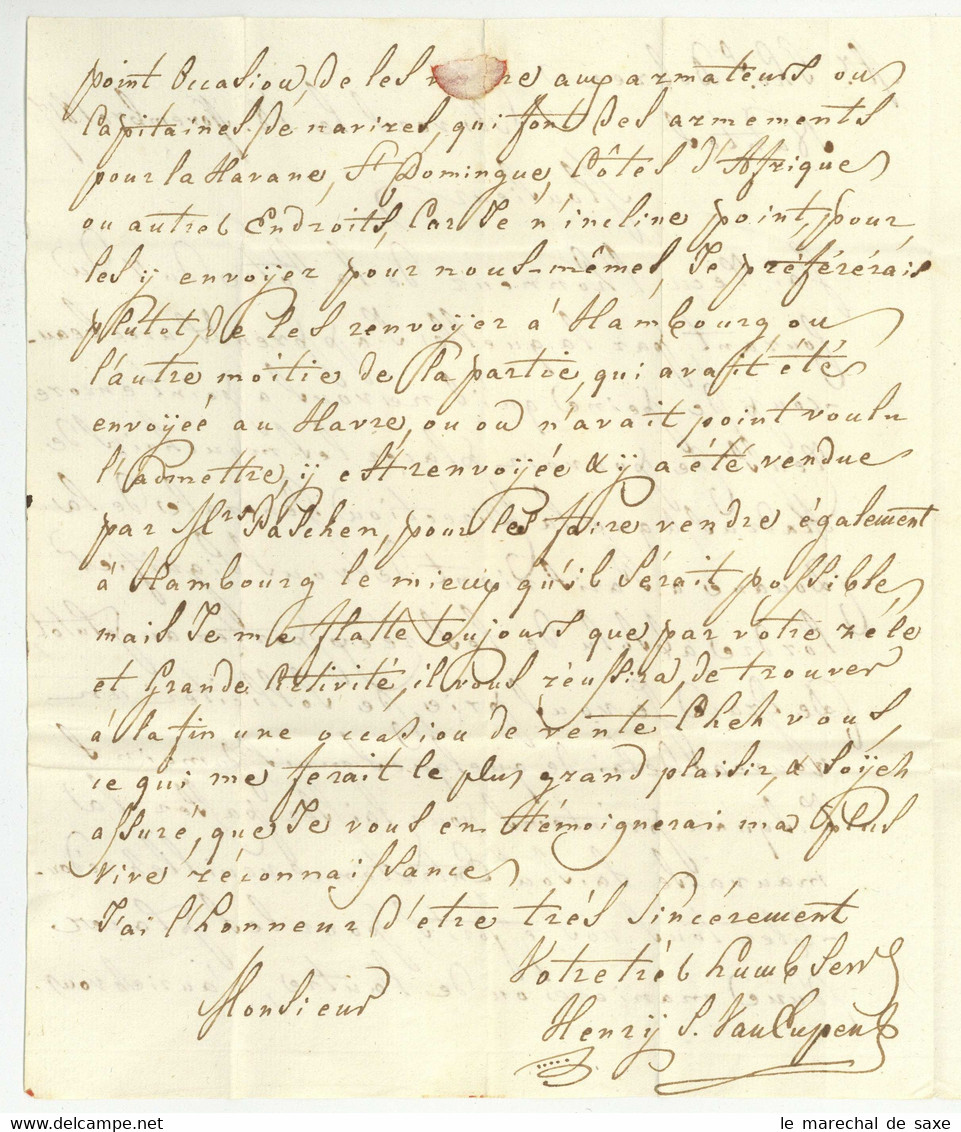 point Occasion, de les aux armateurs ou
Capitaines de navires, qui font des armements
pour la Havane, St Domingue, Côtes d'Afrique
ou autres Endroits, Car Je n'incline point, pour
les ÿ envoÿer pour nous-mêmes, Je préférérais
plutot, de les renvoÿer à Hambourg ou
l'autre moitie de la partie, qui avait été
envoÿéé au Havre, ou on n'avait point voulu
l'admettre, ÿ est renvoÿée & ÿ a été vendue
par Mrs Paschen, pour les faire vendre également
à Hambourg le mieux qu'il sérait possible,
mais Je me flatte toujours que par vôtre zéle
et Grande Activité, il vous réussira, de trouver
à la fin une occasion de vente Cheh vous,
ce qui me ferait le plus grand plaisir, & soÿeh
assuré, que Je vous en témoignerai ma plus
vive réconnaissance
J'ai l'honneur d'étre trés Sincérement
Votre trés humb Serv
Monsieur
Henrÿ S. Van Cupen
le marechal de saxe